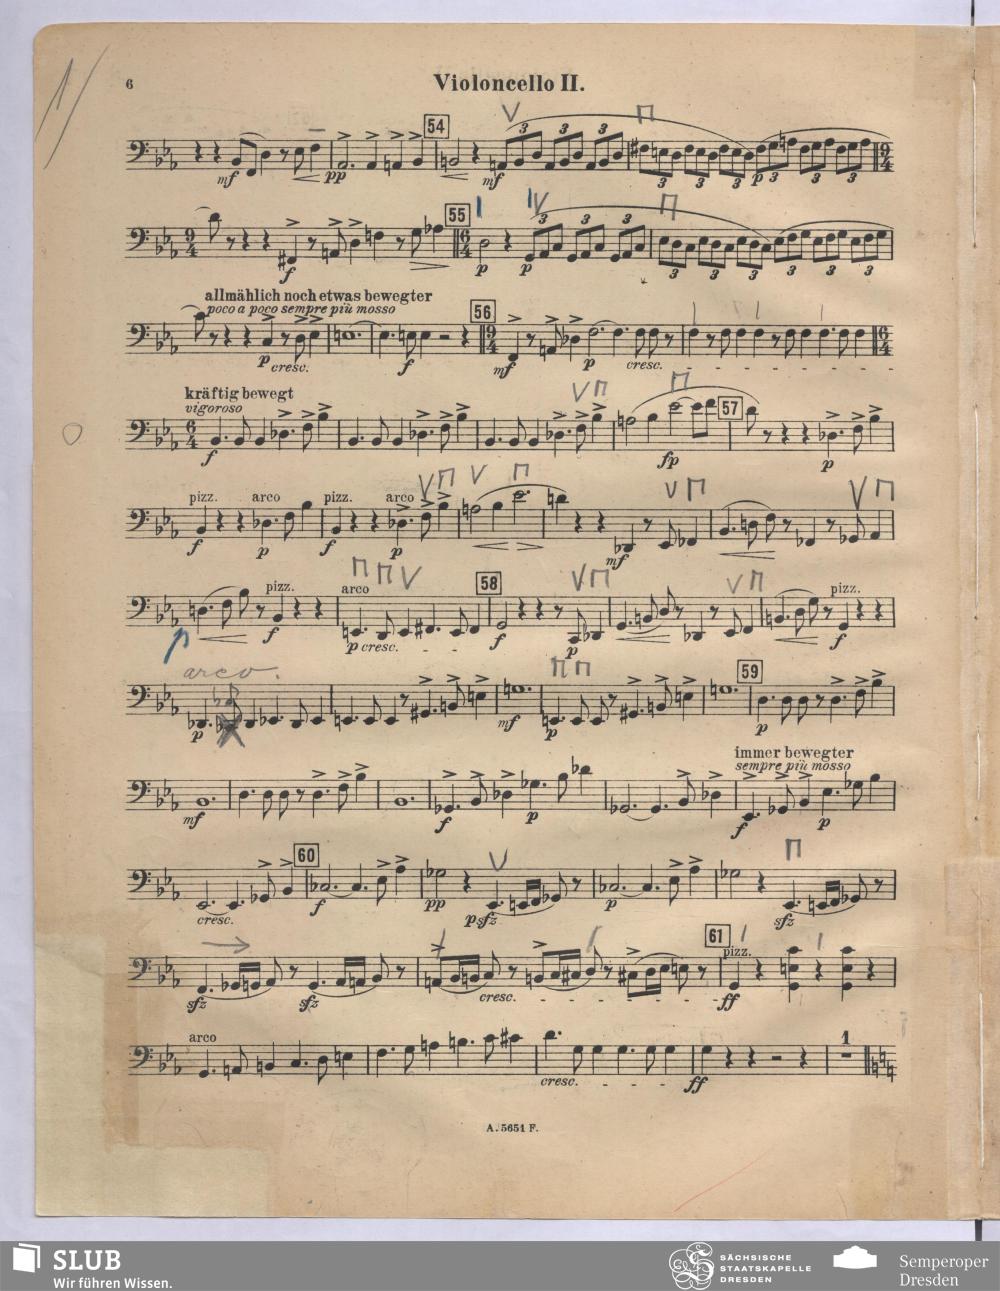 6
Violoncello II.
1/
54
mf
pp
mf
p
3 3 3 3 3 3 3 3 3
9 4
55
9 4
f
6 4
p
p
3 3 3 3 3 3 3 3
allmählich noch etwas bewegter
poco a poco sempre più mosso
56
p cresc.
f
9 4
mf
p
cresc.
6 4
kräftig bewegt
vigoroso
57
6 4
f
fp
p
pizz. arco pizz. arco
f
p
f
p
mf
pizz.
arco
58
pizz.
f
p cresc.
f
p
f
arco
59
p
mf
p
p
immer bewegter
sempre più mosso
mf
f
p
f
p
60
cresc.
f
pp
p sfz
p
sfz
61
pizz.
sfz
sfz
cresc.
ff
arco
1
cresc.
ff
A. 5651 F.
SLUB
Wir führen Wissen.
SÄCHSISCHE
STAATSKAPELLE
DRESDEN
Semperoper
Dresden